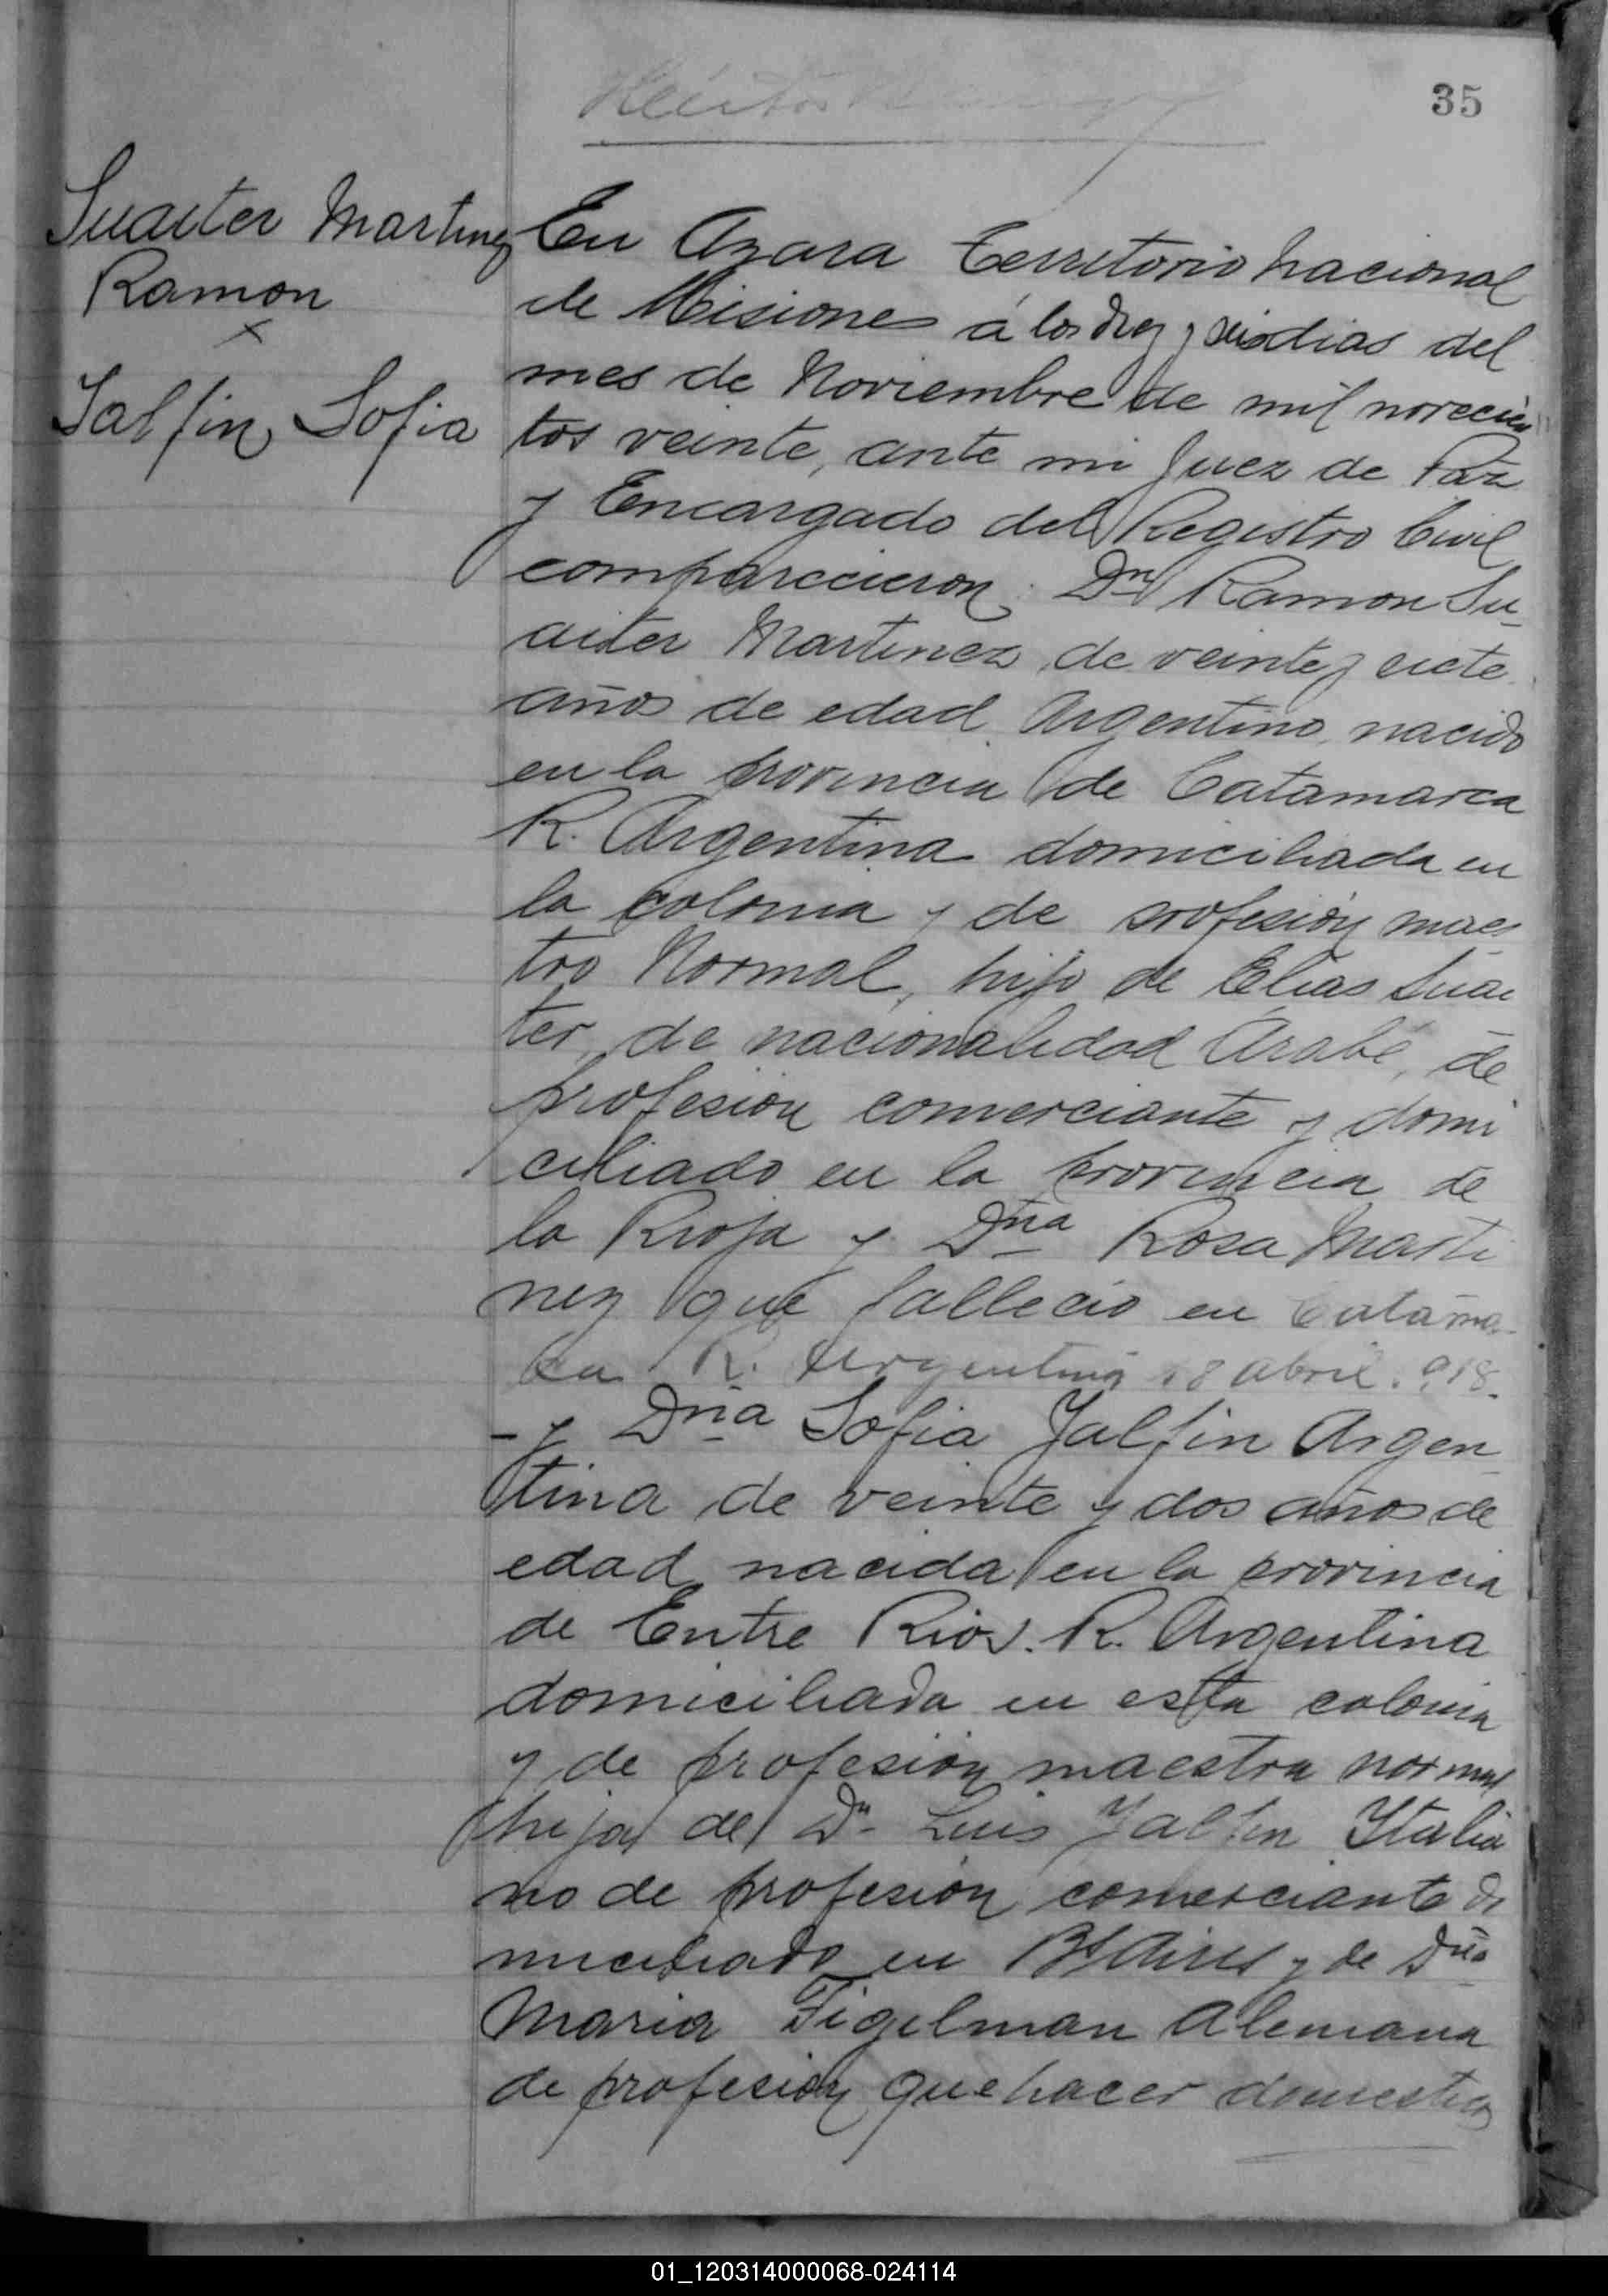 35
Suaiter Martinez
Ramon
x
Jalfin, Sofia
En Azara Territorio Nacional
de Misiones á los diez y seis dias del
mes de Noviembre de mil novecien
tos veinte, ante mi Juez de Paz
y Encargado del Registro Civil
comparecieron: Dn Ramon Su-
aiter Martinez, de veinte y siete
años de edad Argentino, nacido
en la provincia de Catamarca
R. Argentina domiciliada en
la colonia y de profesión maes
tro Normal, hijo de Elias Suai
ter, de nacionalidad Arabe, de
profesión comerciante y domi
ciliado en la provincia de
la Rioja y Dña Rosa Marti
nez que fallecio en Catamar-
ca R. Argentina 18 abril. 918.
- y Dña Sofia Jalfin Argen
tina de veinte y dos años de
edad nacida en la provincia
de Entre Rios. R. Argentina
domiciliada en esta colonia
y de profesión maestra normal
hija de Dn Luis Jalfin Italia
no de profesión comerciante do
miciliado en Bs Aires y de Dña
Maria Figelman Alemana
de profesión que hacer domestico
01_120314000068-024114